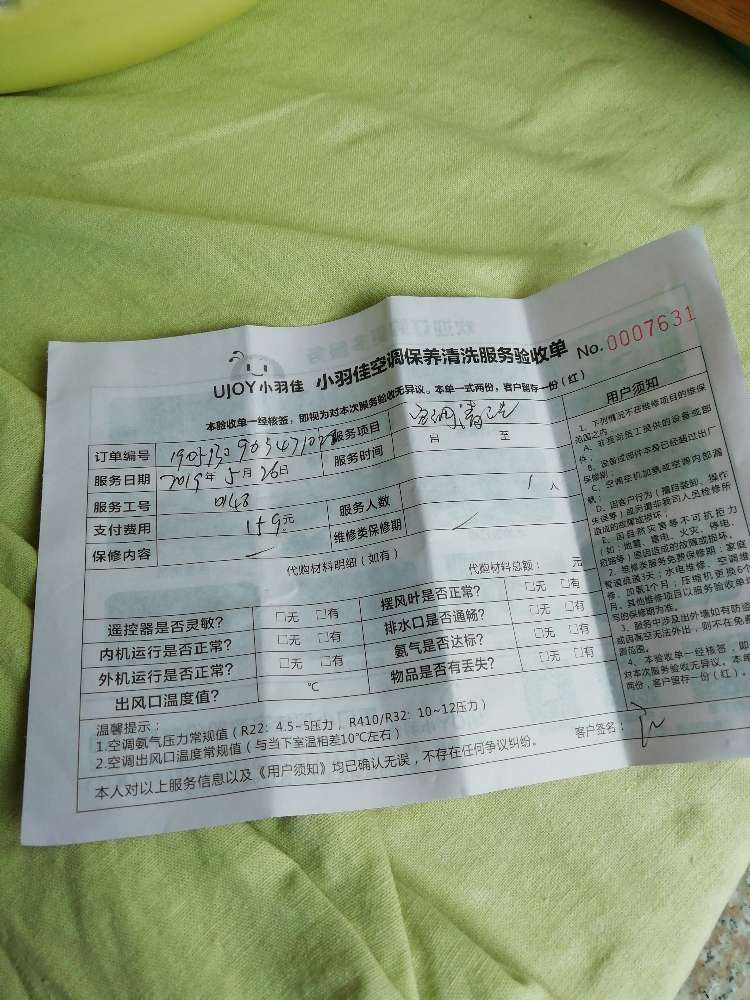 UJOY小羽佳 小羽佳空调保养清洗服务验收单 No.0007631
本验收单一经核签，即视为对本次服务验收无异议。本单一式两份，客户留存一份（红）
订单编号 服务项目 空调清洗
服务日期 2019年5月26日 服务时间 台 至
服务工号 0148
支付费用 1+9元 服务人数 1人
保修内容 维修类保修期
代购材料明细（如有） 代购材料总额： 元
遥控器是否灵敏？ □无 □有 摆风叶是否正常？ □无 □有
内机运行是否正常？ □无 □有 排水口是否通畅？ □无 □有
外机运行是否正常？ □无 □有 氨气是否达标？ □无 □有
出风口温度值？ ℃ 物品是否有丢失？ □无 □有
温馨提示：
1.空调氨气压力常规值（R22：4.5~5压力，R410/R32：10~12压力）
2.空调出风口温度常规值（与当下室温相差10℃左右）
本人对以上服务信息以及《用户须知》均已确认无误，不存在任何争议纠纷。 客户签名：
用户须知
1、下列情况不在维修项目的维保
范围之内：
A、非我司员工提供的设备或部
件；
B、设备或部件本身已经超过出厂
保修期；
C、空调空机加氨或空调内部漏
氨；
D、因客户行为（擅自装卸、操作
失误等）或另请非我司人员检修所
造成的故障或损坏；
E、因自然灾害等不可抗拒力
（如：地震、雷电、火灾、停电、
2、维修类服务免费保修期：家庭
管道疏通3天；水电维修、空调维
修、加氨1个月；压缩机更换6个
月。其他维修项目以服务验收单
写的保修期为准。
3、服务中涉及出外墙如有防盗
或调高空无法外出，则不在免费
4、本验收单一经核签，即
对本次服务验收无异议。本单
两份，客户留存一份（红）。